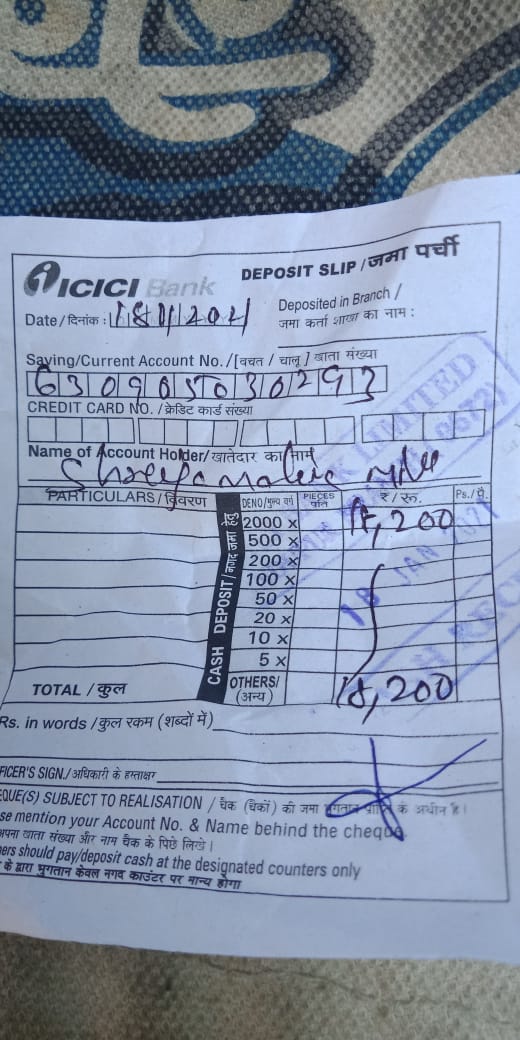 ICICI Bank
DEPOSIT SLIP / जमा पर्ची
Date / दिनांक :
Deposited in Branch /
जमा कर्ता शाखा का नाम :
Saving/Current Account No. / [बचत / चालू] खाता संख्या
630905030293
CREDIT CARD NO. / क्रेडिट कार्ड संख्या
Name of Account Holder/ खातेदार का नाम
PARTICULARS / विवरण
DENO/मुल्य वर्ग PIECES ₹ / रू. Ps./पै.
CASH DEPOSIT / नगद जमा हेतु
2000 x
500 x
200 x
100 x
50 x
20 x
10 x
5 x
OTHERS/
(अन्य)
TOTAL / कुल
18,200
Rs. in words / कुल रकम (शब्दों में)
FICER'S SIGN./ अधिकारी के हस्ताक्षर
EQUE(S) SUBJECT TO REALISATION / चैक (चिकों) की जमा भुगतान के अधीन है।
se mention your Account No. & Name behind the cheque.
अपना खाता संख्या और नाम चैक के पिछे लिखे।
ers should pay/deposit cash at the designated counters only
के द्वारा भुगतान केवल नगद काउंटर पर मान्य होगा